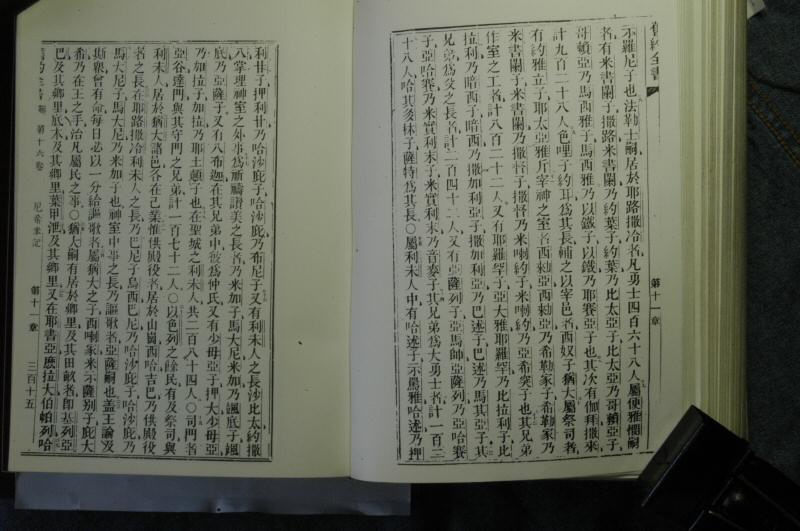 舊約全書
第十一章
示羅尼子也法勒士嗣居於耶路撒冷者凡勇士四百六十八人屬便雅憫嗣
者有米書闌子撒路米書闌乃約葉子約葉乃比太亞子比太亞乃哥賴亞子
哥頓亞乃馬西雅子馬西雅乃以鐵子以鐵乃耶賽亞子也其次有伽拜撒來
計九百二十八人色哩子約耳爲其長輔之以宰邑者西奴子猶大屬祭司者
有約雅立子耶太亞雅斤宰神之室者西勑亞西勑亞乃希勒家子希勒家乃
米書闌子米書闌乃撒督子撒督乃米喇約子米喇約乃亞希突子也其兄弟
作室之工者計八百二十二人又有耶羅罕子亞大雅耶羅罕乃比拉利子比
拉利乃暗西子暗西乃撒加利亞子撒加利亞乃巴述子巴述乃馬其亞子其
兄弟爲父之長者計二百四十二人又有亞薩列子亞馬帥亞薩列乃亞哈賽
子亞哈賽乃米實利末子米實利末乃音麥子其兄弟爲大勇士者計一百二
十八人哈其多林子薩特爲其長〇屬利未人中有哈述子示馬雅哈述乃押
利甘子押利甘乃哈沙庇子哈沙庇乃布尼子又有利未人之長沙比太約撒
八掌理神室之外事爲祈禱讃美之長者乃米加子馬大尼米加乃颯底子颯
底乃亞薩子又有八布迦在其兄弟中彼爲仲氏又有少母亞子押大少母亞
乃加拉子加拉乃耶土頓子也在聖城之利未人共二百八十四人〇司門者
亞谷達們與其守門之兄弟計一百七十二人〇以色列之餘民有及祭司與
利未人居於猶大諸邑各在己業惟供殿役者居於山岡西哈吉巴乃供殿役
者之長在耶路撒冷利未人之長乃巴尼子烏西巴尼乃哈沙庇子哈沙庇乃
馬大尼子馬大尼乃米加子也神室中事之長乃謳歌者亞薩嗣也盖王諭及
斯衆曾有命每日必以一分給謳歌者屬猶大之子西喇家米示薩别子庇大
希乃在王之手治凡屬民之事〇猶大嗣有居於鄉里及其田畝者卽基列亞
巴及其鄉里底本及其鄉里葉甲泄及其鄉里又在耶書亞麽拉大伯帕列哈
舊約全書 第十六卷 尼希米記 第十一章 三百十五